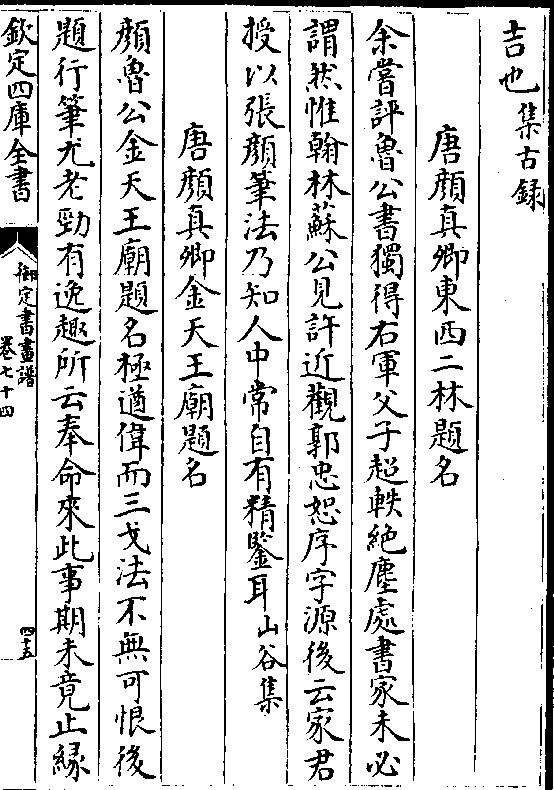 吉也集古録
唐顔真卿東西二林題名
余嘗評魯公書獨得右軍父子超軼絶塵處書家未必
謂然惟翰林蘇公見許近觀郭忠恕序字源後云家君
授以張顔筆法乃知人中常自有精鑒耳山谷集
唐顔真卿金天王廟題名
顔魯公金天王廟題名極遒偉而三戈法不無可恨後
題行筆尤老勁有逸趣所云奉命來此事期未竟止緣
欽定四庫全書
御定書畫譜
卷七十四
四十五